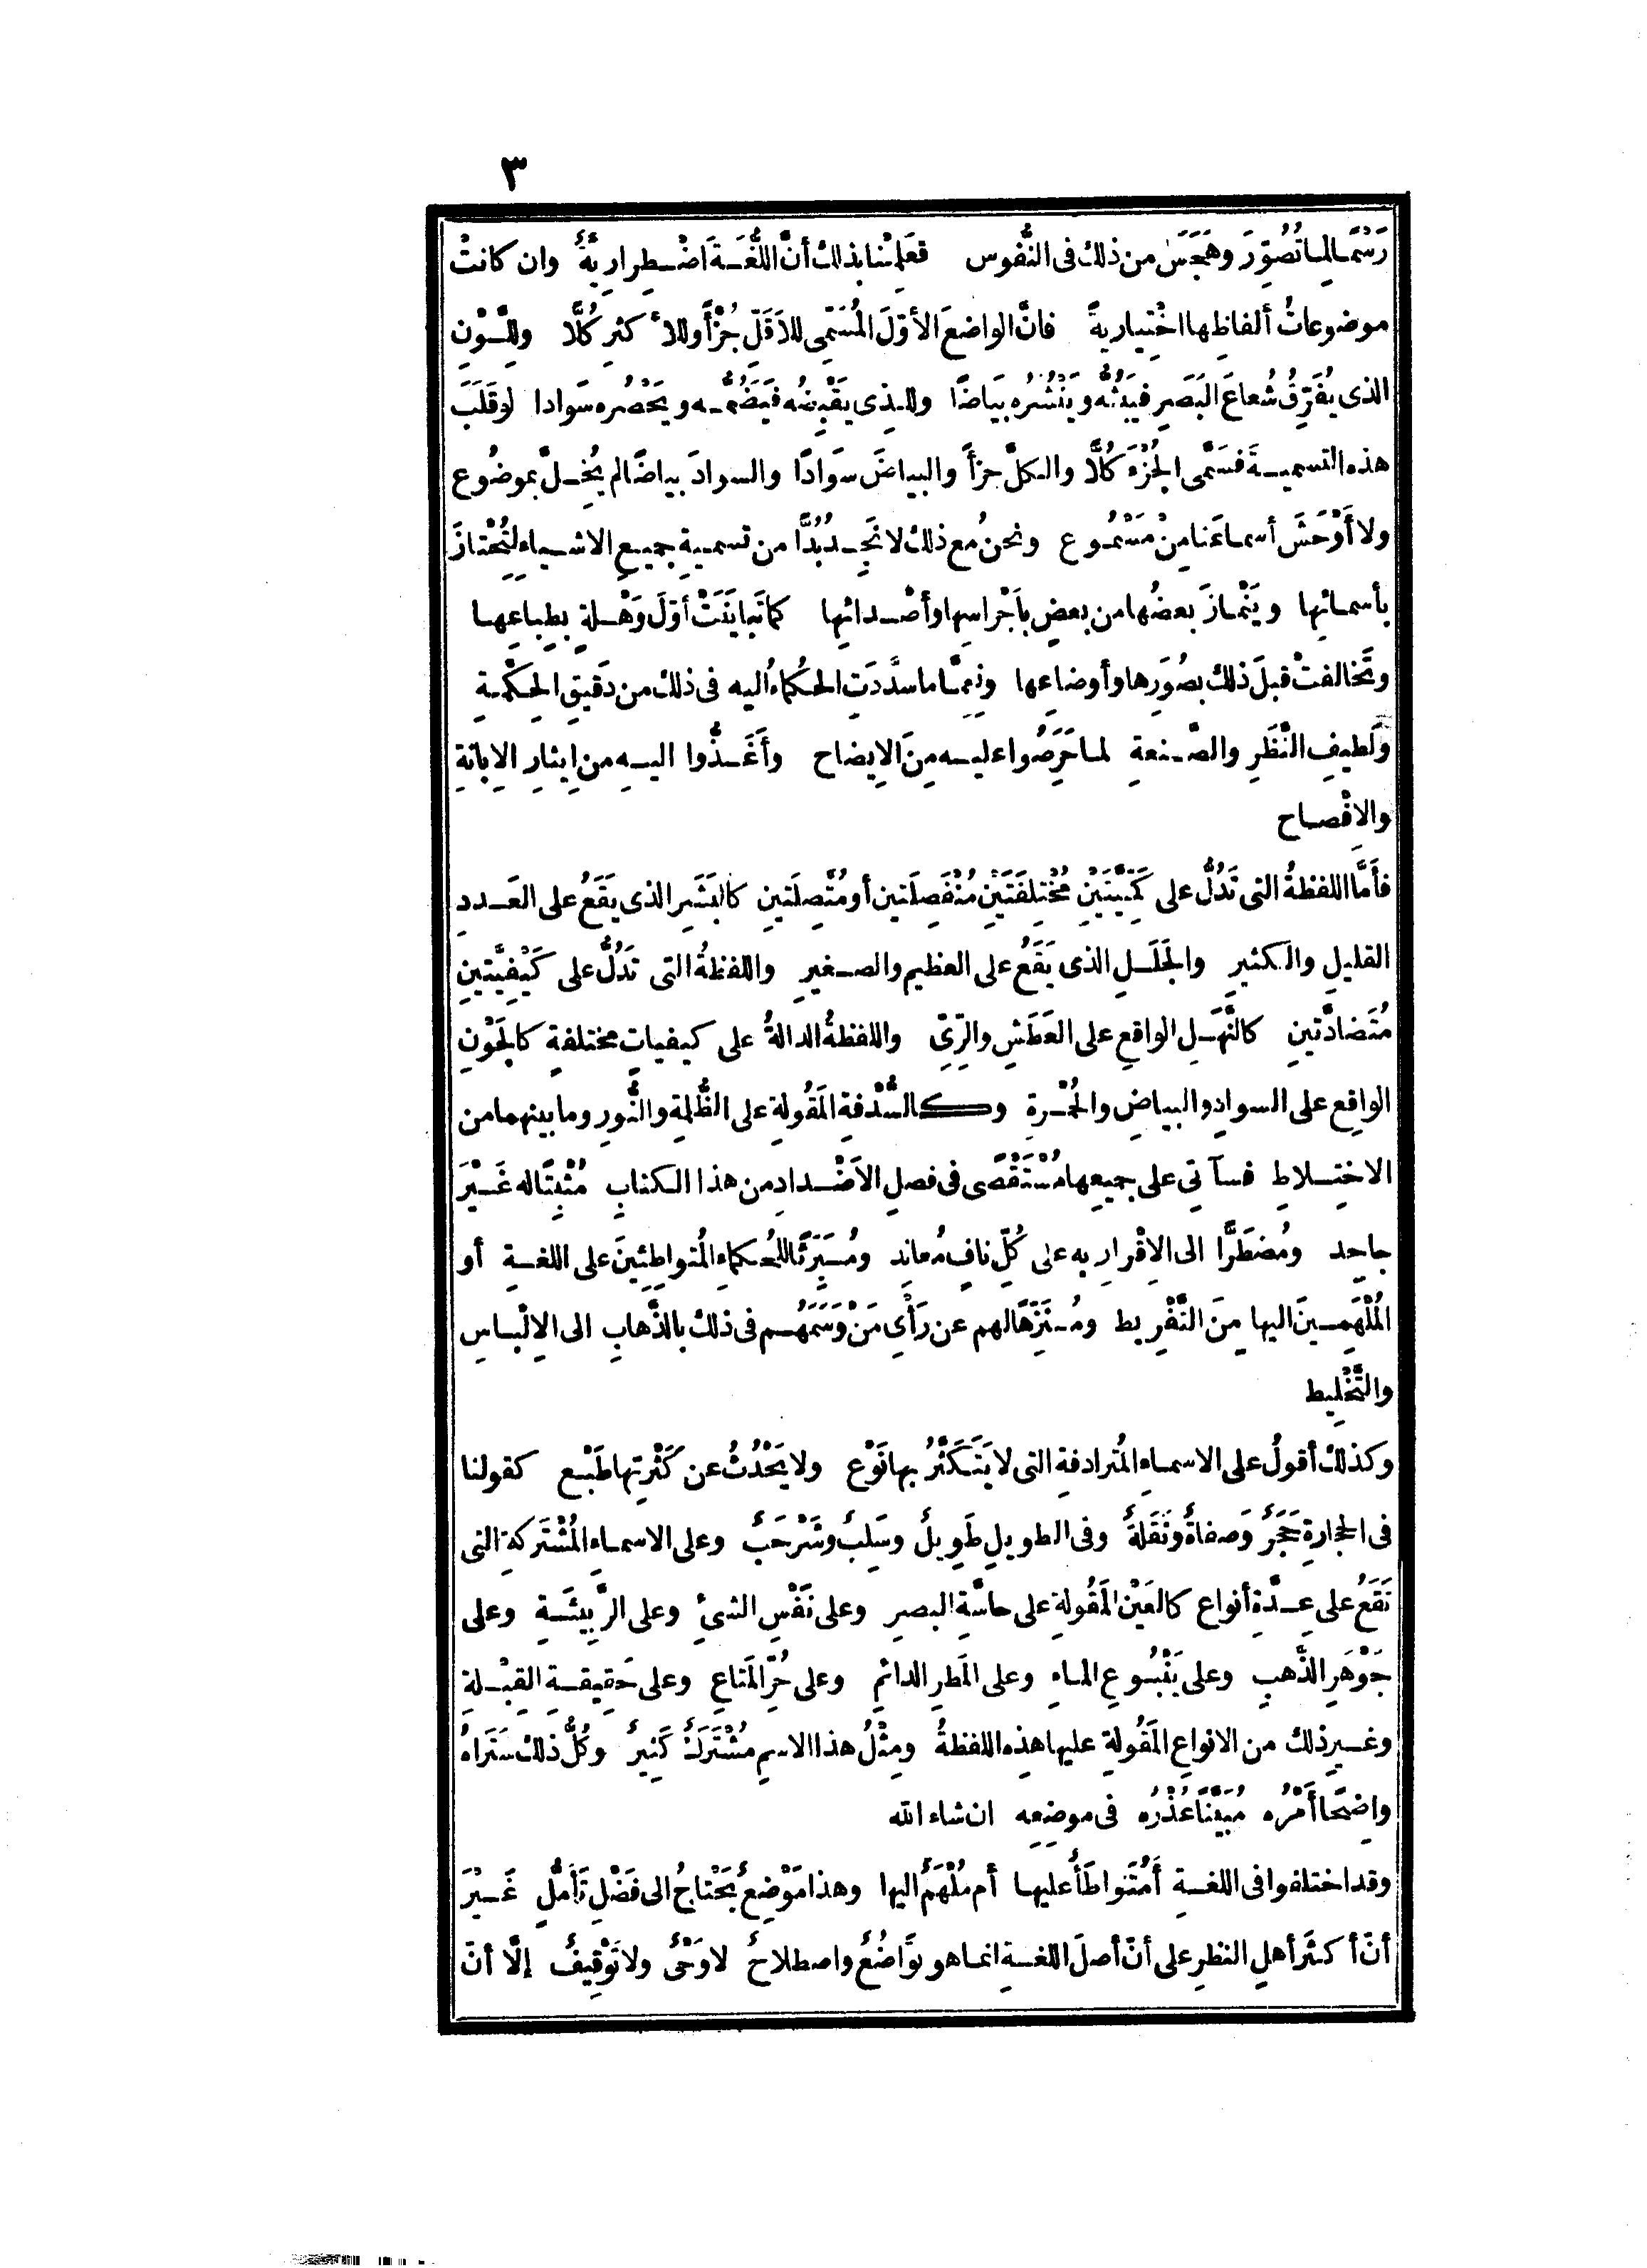 ٣
رَسْمًا لِمَا تُصُوِّرَ وهَجَسَ من ذلك فى النُّفوس فعَلِمْنا بذلك أنَّ اللُّغَةَ اضْطِرارِيَّةٌ وان كانتْ
موضوعاتُ ألفاظِها اخْتِيارِيةً فانَّ الواضعَ الأوّلَ المُسَمِّى للأَقَلِّ جُزْأً وللأَكثرِ كُلًّا ولِلَّوْنِ
الذى يُفَرِّقُ شُعاعَ البَصَرِ فيَبُثُّه ويَنْشُرُه بيَاضًا وللذِى يَقْبِضُه فيَضُمُّه ويَحْصُره سَوادا لوقَلَبَ
هذه التسميةَ فسَمَّى الجُزْءَ كُلًّا والكلَّ جزأً والبياضَ سَوادًا والسوادَ بياضًا لم يُخِلَّ بموضُوع
ولا أَوْحَشَ أسماعَنا مِنْ مَسْمُوع ونحنُ مع ذلك لا نَجِدُ بُدًّا من تسميةِ جميعِ الاشياء لِتَحْتازَ
بأسمائِها ويَنْمازَ بعضُها من بعضٍ بأَجْراسِها وأصْدائِها كما تَبايَنَتْ أوّلَ وَهْلةٍ بِطِباعِها
وتَخالفتْ قبلَ ذلك بصُوَرِها وأوضاعِها ونِعِمَّا ما سدَّدَتِ الحُكماءُ اليه فى ذلك من دَقيقِ الحِكْمةِ
ولَطيفِ النَّظَرِ والصَّنعةِ لما حَرَصُوا عليه مِنَ الإِيضاح وأَغَذُّوا اليهِ من إيثارِ الإِبانةِ
والافْصاح
فأمَّا اللفظةُ التى تَدُلُّ على كَمِّيَّتَيْنِ مُخْتلِفَتَيْنِ مُنْفَصِلَتين أو مُتَّصِلَتينِ كالبَشَرِ الذى يقَعُ على العَددِ
القليلِ والكثيرِ والجَلَلِ الذى يَقَعُ على العظيم والصغيرِ واللفظةُ التى تدُلُّ على كَيْفِيَّتينِ
مُتَضادَّتينِ كالنَّهَلِ الواقعِ على العَطَشِ والرِّىّ واللفظةُ الدالةُ على كيفياتٍ مختلفةٍ كالجَوْنِ
الواقِع على السوادِ والبياضِ والحُمْرةِ وكالسُّدْفةِ المَقُولةِ على الظُّلمةِ والنُّورِ وما بينهما من
الاختِلاطِ فسآتى على جميعِها مُسْتَقْصًى فى فصلِ الاَضْدادِ من هذا الكتابِ مُثْبِتًا له غَيْرَ
جاحِد ومُضطَرًّا الى الاِقْرارِ به على كُلِّ نافٍ مُعانِد ومُبَرِّئًا للحُكماءِ المُتواطِئِينَ على اللغةِ أو
المُلْهَمِينَ اليها مِنَ التَّفْرِيط ومُنَزِّهًا لهم عن رَأْىِ مَنْ وَسَمَهُم فى ذلك بالذَّهابِ الى الإِلْباسِ
والتَّخْلِيط
وكذلك أقولُ على الاسماءِ المُترادفةِ التى لا يَتَكَثَّرُ بها نَوْع ولا يَحْدُثُ عن كَثْرَتِها طَبْع كقولنا
فى الحِجارةِ حَجَرٌ وَصفاةٌ ونَقَلةٌ وفى الطويلِ طَوِيلٌ وسَلِبٌ وشَرْحَبٌ وعلى الاسماءِ المُشْتَركة التى
تقَعُ على عِدّةِ أنواع كالعَيْنِ المَقُولةِ على حاسَّةِ البصرِ وعلى نَفْسِ الشئِ وعلى الرَّبِيئَةِ وعلى
جَوْهَرِ الذَّهبِ وعلى يَنْبُوعِ الماءِ وعلى المَطرِ الدائمِ وعلى حُرِّ المَتاعِ وعلى حَقِيقةِ القِبْلةِ
وغيرِ ذلك من الانواعِ المَقُولةِ عليها هذِه اللفظةُ ومِثْلُ هذا الاسمِ مُشْتَرَكٌ كَثيرٌ وكُلُّ ذلك ستَراهُ
واضِحًا أَمْرُه مُبَيَّنًا عُذْرُه فى موضِعِه ان شاء الله
وقد اختلفوا فى اللغةِ أَمُتَواطَأٌ عليها أم مُلْهَمٌ اليها وهذا مَوْضِعٌ يَحْتاجُ الى فَضْلِ تَأَمُّلٍ غَيْرَ
أنّ أكثرَ أهلِ النظرِ على أنّ أصلَ اللغةِ انما هو تَواضُعٌ واصطلاحٌ لا وَحْىٌ ولا تَوْقِيفٌ إلّا أنّ